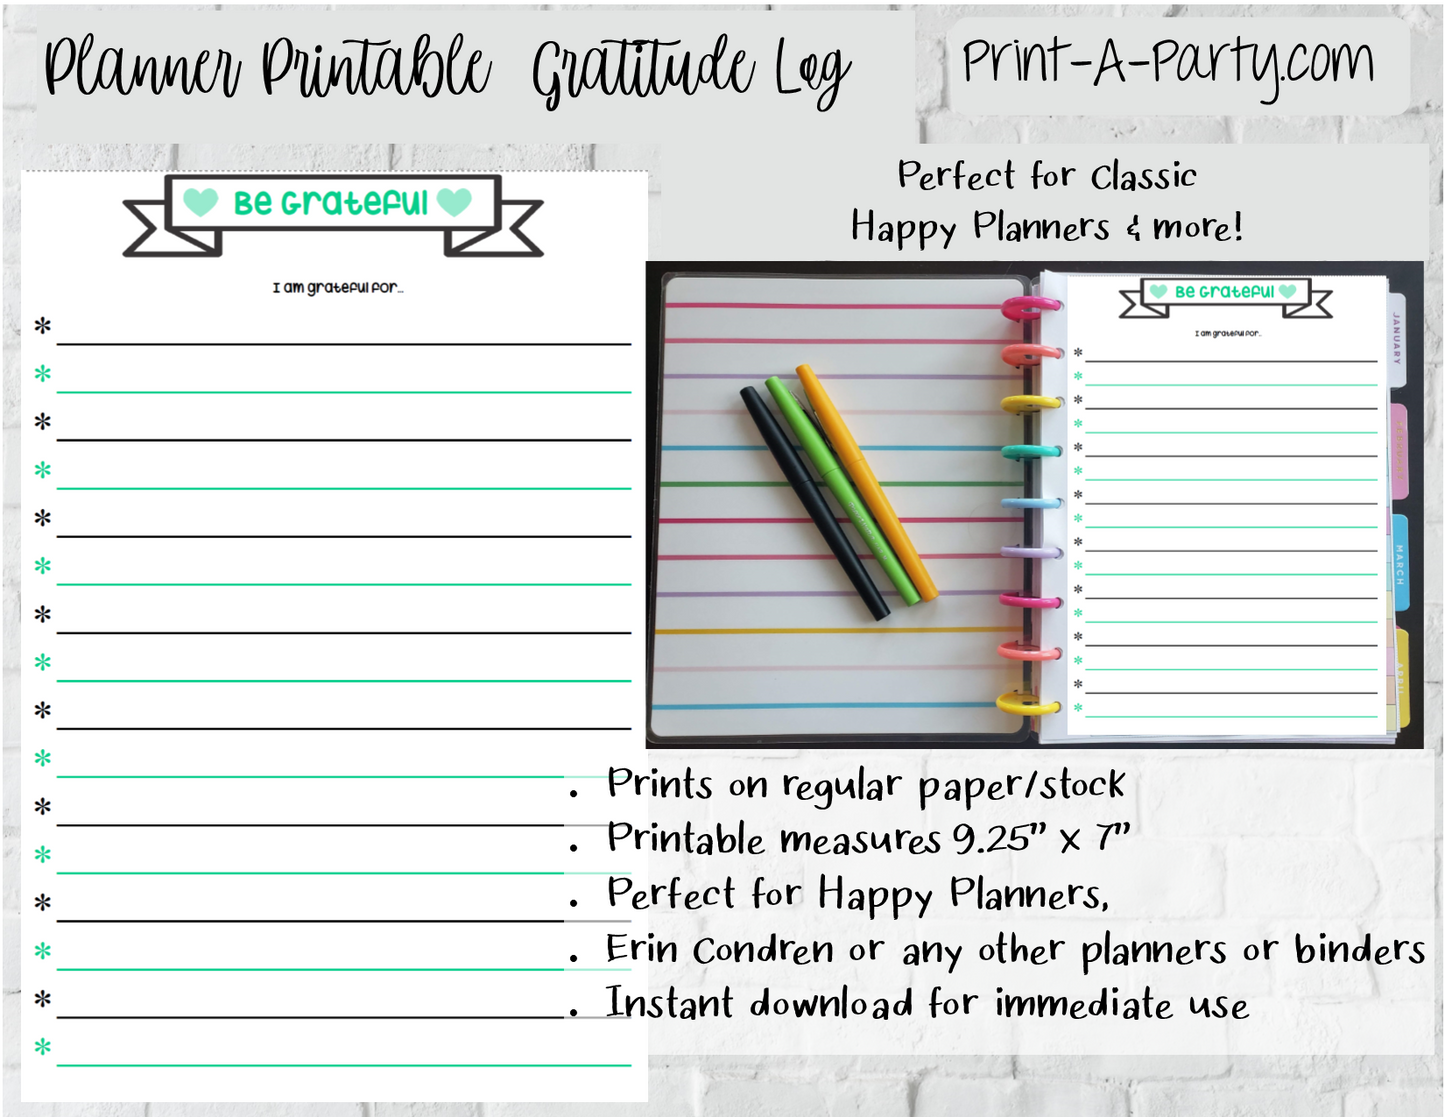 Planner Printable Gratitude Log
Print-A-Party.com
Be Grateful
I am grateful for...
*
*
*
*
*
*
*
*
*
*
*
*
*
*
*
*
Perfect for Classic
Happy Planners & more!
Be Grateful
I am grateful for...
*
*
*
*
*
*
*
*
*
*
*
*
*
*
*
*
JANUARY
FEBRUARY
MARCH
APRIL
. Prints on regular paper/stock
. Printable measures 9.25” X 7”
. Perfect for Happy Planners,
. Erin Condren or any other planners or binders
. Instant download for immediate use